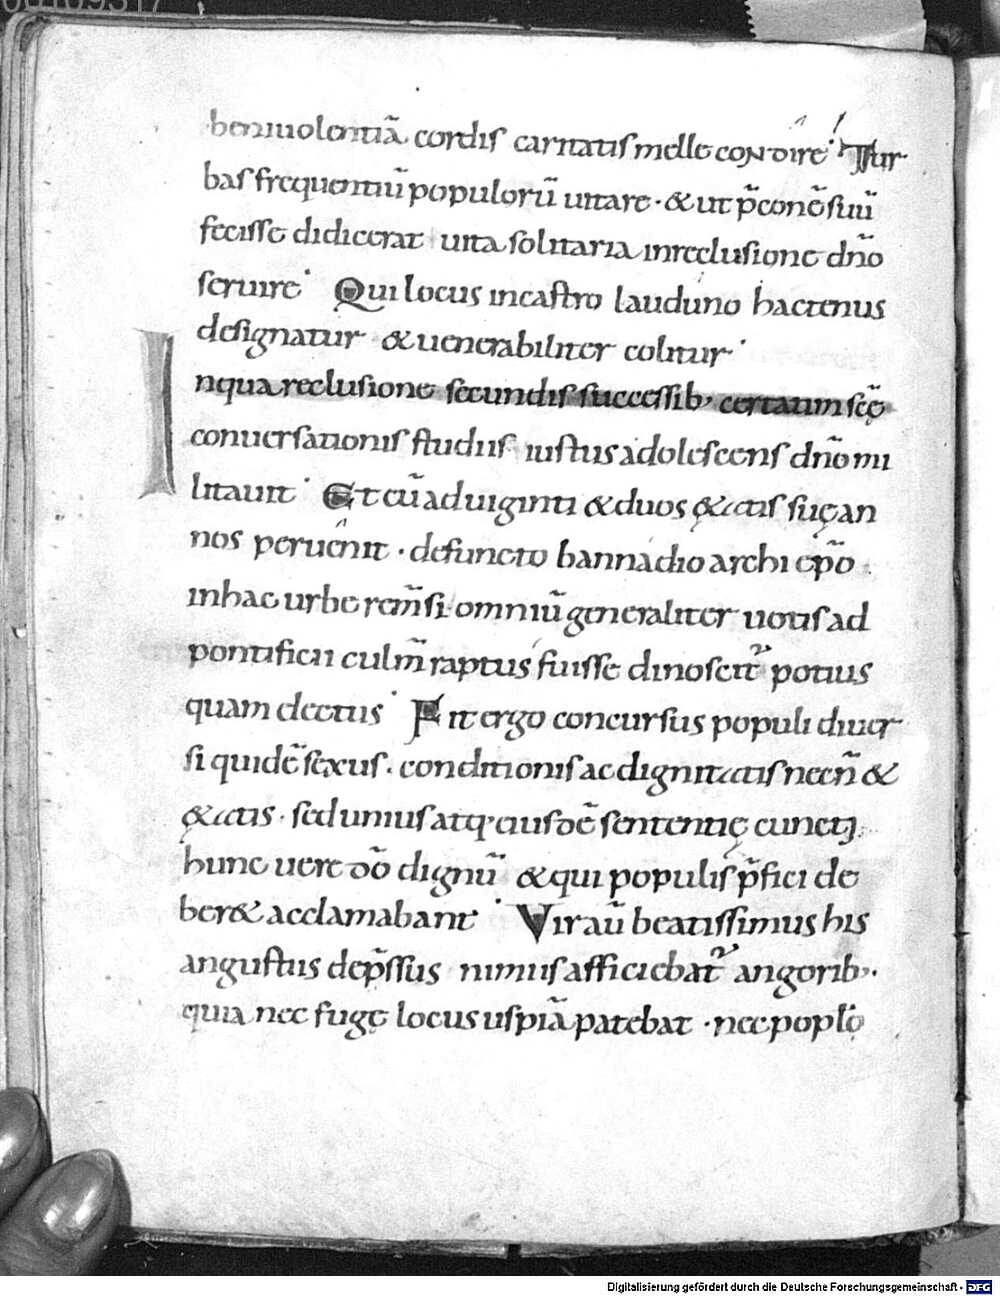 beniuolentiā cordis caritatis melle condire. Tur
bas frequentiū populorū uitare · & ut p̄conē suū
fecisse didicerat uita solitaria in reclusione dn̄o
seruire. Qui locus in castro lauduno hactenus
designatur & uenerabiliter colitur.
In qua reclusione secundis successib; certatim sc̄ę
conuersationis studiis iustus adolescens dn̄o mi
litauit. Et cū ad uiginti & duos ętatis suę an
nos peruenit · defuncto bannadio archi ep̄o
in hac urbe rem̄si omniū generaliter uotis ad
pontificii culm̄ raptus fuisse dinoscit᷑ potius
quam electus. Fit ergo concursus populi diuer
si quidē sexus. conditionis ac dignitatis necn̄ &
ętatis · sed unius atq; eiusdē sententię cuncti
hunc uere dō dignū & qui populis p̄fici de
ber& acclamabant. Vir aū beatissimus his
angustiis dep̄ssus nimiis afficiebat᷑ angorib;.
quia nec fugę locus uspiā patebat · nec poplō
Digitalisierung gefördert durch die Deutsche Forschungsgemeinschaft - DFG